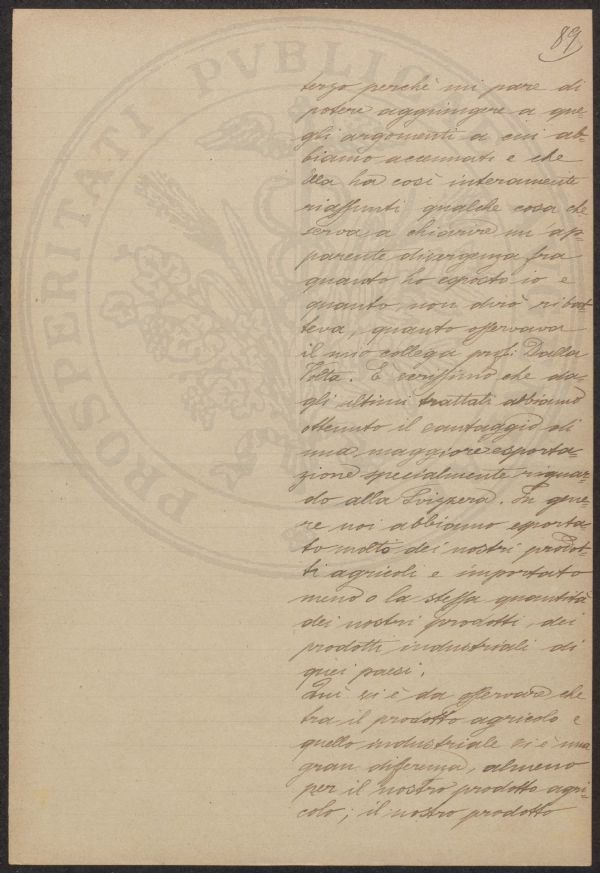 89
PROSPERITATI PVBLICAE
tergo perchè mi pare di
potere aggiungere a que-
gli argomenti a cui ab-
biamo accennati e che
Ella ha così interamente
riassunti qualche cosa che
serva a chiarire un ap-
parente divergenza fra
quanto ho esposto io e
quanto, non dirò ribat-
teva, quanto osservava
il mio collega prof: Dalla
Volta. È verissimo che da-
gli ultimi trattati abbiamo
ottenuto il vantaggio di
una maggiore esporta-
zione specialmente riguar-
do alla Svizzera. In gene-
re noi abbiamo esporta-
to molto dei nostri prodot-
ti agricoli e importato
meno o la stessa quantità
dei nostri prodotti, dei
prodotti industriali di
quei paesi.
Qui vi è da osservare che
tra il prodotto agricolo e
quello industriale vi è una
gran differenza, almeno
per il nostro prodotto agri-
colo; il nostro prodotto